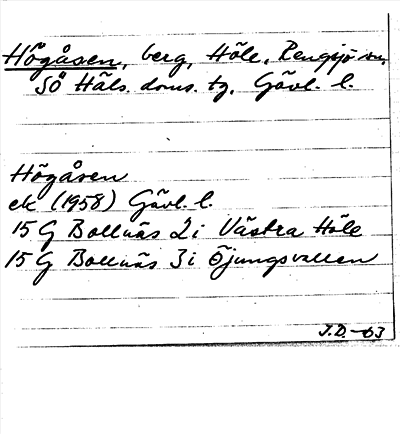 Högåsen, berg, Höle, Rengsjö sn,
SÖ Häls. doms. tg, Gävl. l.
Högåsen
ek (1958) Gävl. l.
15 G Bollnäs 2 i Västra Höle
15 G Bollnäs 3 i Öjungsvallen
J.D. -63